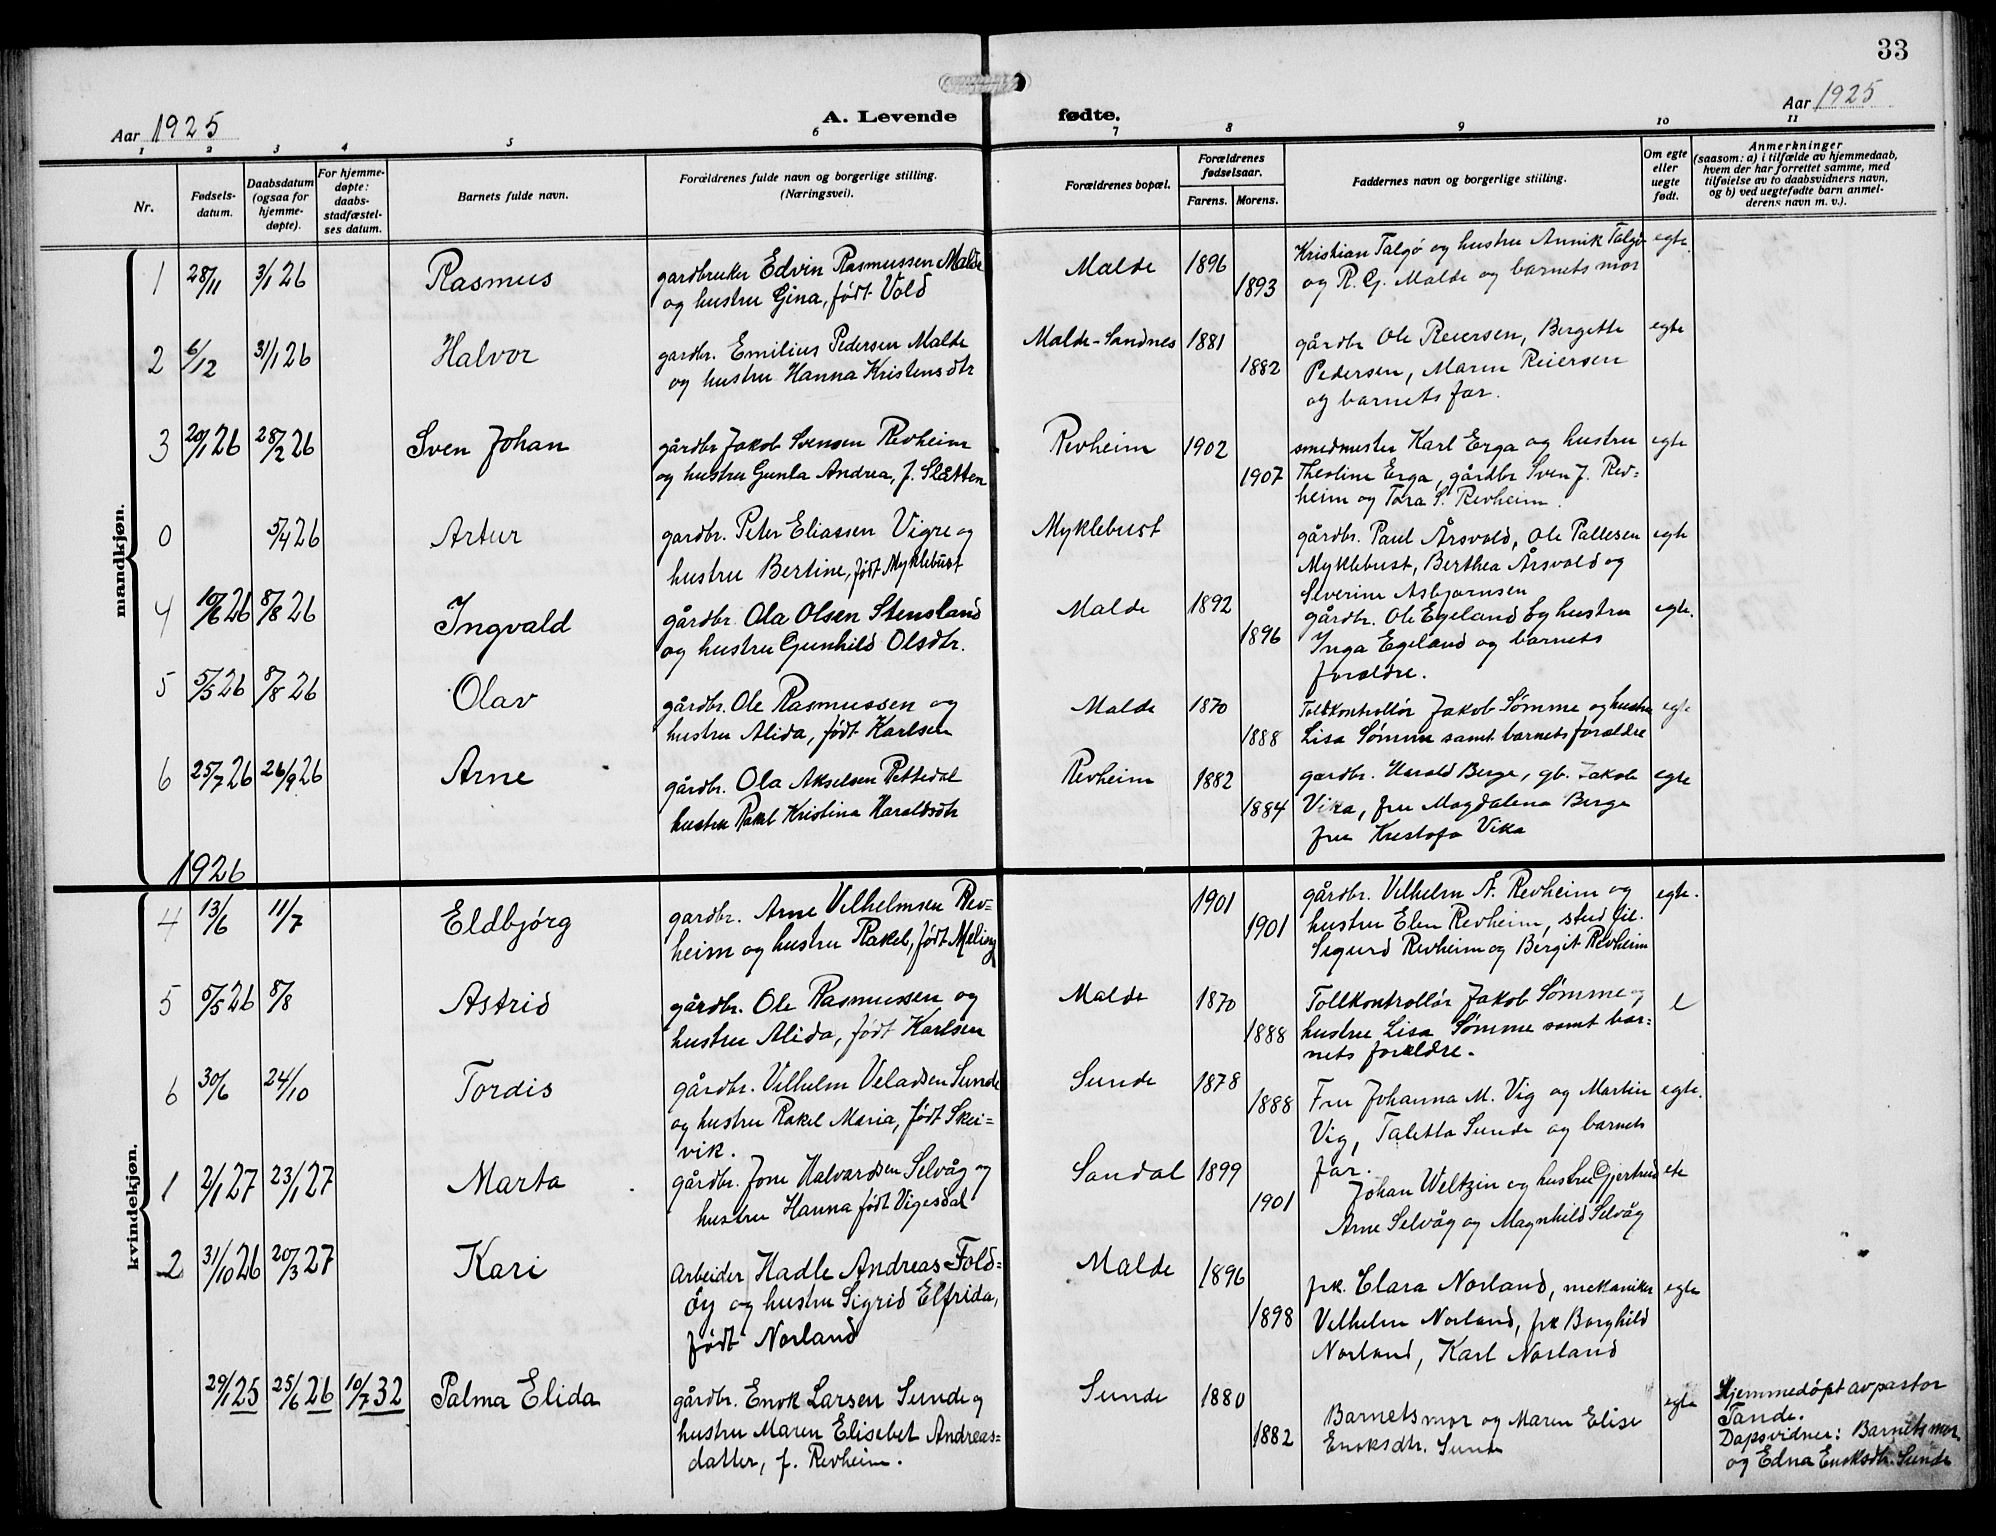 33
Aar 1925
A. Levende
fødte.
Aar 1925
1 2 3 4 5 6 7 8 9 10 11
Nr.
Fødsels-
datum.
Daabsdatum
(ogsaa for
hjemme-
døpte).
For hjemme-
døpte:
daabs-
stadfæstel-
ses datum.
Barnets fulde navn.
Forældrenes fulde navn og borgerlige stilling.
(Næringsvei).
Forældrenes bopæl.
Forældrenes
fødselsaar.
Farens. Morens.
Faddernes navn og borgerlige stilling.
Om egte
eller
uegte
født.
Anmerkninger
(saasom: a) i tilfælde av hjemmedaab,
hvem der har forrettet samme, med
tilføielse av to daabsvidners navn,
og b) ved uegtefødte barn anmel-
derens navn m. v.).
mandkjøn.
1 28/11 3/1 26 Rasmus
gardbruker Edvin Rasmussen Malde
og hustru Gina, født Vold
Malde 1896
1893
Kristian Talgø og hustru Annik Talgø
og R. G. Malde og barnets mor
egte
2 6/12 31/1 26 Halvor
gardbr. Emilius Pedersen Malde
og hustru Hanna Kristensdtr
Malde-Sandnes 1881
1882
gårdbr Ole Reiersen, Bergette
Pedersen, Maren Reiersen
og barnets far.
egte
3 20/1 26 28/2 26 Sven Johan
gårdbr Jakob Svensen Revheim
og hustru Gunla Andrea, f. Slætten
Revheim 1902
1907
smedmester Karl Erga og hustru
Theoline Erga, gårdbr Sven J. Rev=
heim og Tora S. Revheim.
egte
0 5/4 26 Artur
gardbr. Peter Eliassen Vigre og
hustru Bertine, født Myklebust
Myklebust
gårdbr. Paul Årsvold, Ole Pallesen
Myklebust, Berthea Årsvold og
Severine Asbjørnsen
egte
4 10/6 26 8/8 26 Ingvald
gårdbr. Ola Olsen Stensland
og hustru Gunhild Olsdtr.
Malde 1892
1896
gårdbr. Ole Egeland og hustru
Inga Egeland og barnets
forældre.
egte.
5 5/5 26 8/8 26 Olav
gårdbr. Ole Rasmussen og
hustru Alida, født Karlsen
Malde 1870
1888
Tollkontrollør Jakob Sømme og hustru
Lisa Sømme samt barnets forældre
egte
6 25/7 26 26/9 26 Arne
gårdbr. Ola Akselsen Pettedal
hustru Rakel Kristina Haraldsdtr
Revheim 1882
1884
gardbr. Harald Berge, gb. Jakob
Vika, fru Magdalena Berge
fru Kristofa Vika
egte
1926
kvindekjøn.
4 13/6 11/7 Eldbjørg
gardbr. Arne Vilhelmsen Rev=
heim og hustru Rakel, født Meling
1901
1901
gårdbr. Vilhelm Å. Revheim og
hustru Elen Revheim, stud fil.
Sigurd Revheim og Bergit Revheim
egte.
5 5/5 26 8/8 Astrid
gårdbr. Ole Rasmussen og
hustru Alida, født Karlsen
Malde 1870
1888
Tollkontrollør Jakob Sømme og
hustru Lisa Sømme samt bar=
nets forældre.
e
6 30/6 24/10 Tordis
gårdbr. Vilhelm Veladsen Sunde
og hustru Rakel Maria, født Skei=
vik.
Sunde 1878
1888
Fru Johanna M. Vig og Martin
Vig, Taletta Sunde og barnets
far.
egte.
1 2/1 27 23/1 27 Marta
gårdbr. Jone Halvardsen Selvåg og
hustru Hanna født Vigesdal
Sandal 1899
1901
Johan Weltzin og hustru Gjertrud
Arne Selvåg og Magnhild Selvåg
ete
2 31/10 26 20/3 27 Kari
Arbeider Hadle Andreas Fold=
øy og hustru Sigrid Elfrida,
født Norland
Malde 1896
1898
frk. Clara Norland, mekaniker
Vilhelm Norland, frk Borghild
Norland, Karl Norland
egte
29/1 25 25/6 26 10/7 32 Palma Elida
gårdbr. Enok Larsen Sunde og
hustru Maren Elisebet Andreas=
datter, f. Revheim.
Sunde 1880
1882
Barnets mor og Maren Elise
Enoksdtr. Sunde
egte
Hjemmedøpt av pastor
Tande.
Dåpsvidner: Barnets mor
og Edna Enoksdtr. Sunde